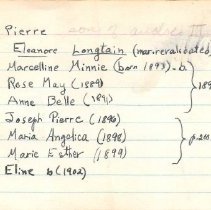 Pierre
Eleanore Longtain (mar. revalidated
Marcelline Minnie (born 1893)-b.
Rose May (1889)
Anne Belle (1891)
189
Joseph Pierre (1896)
Maria Angelica (1898)
Marie Esther (1899)
p. 200
Eline b (1902)